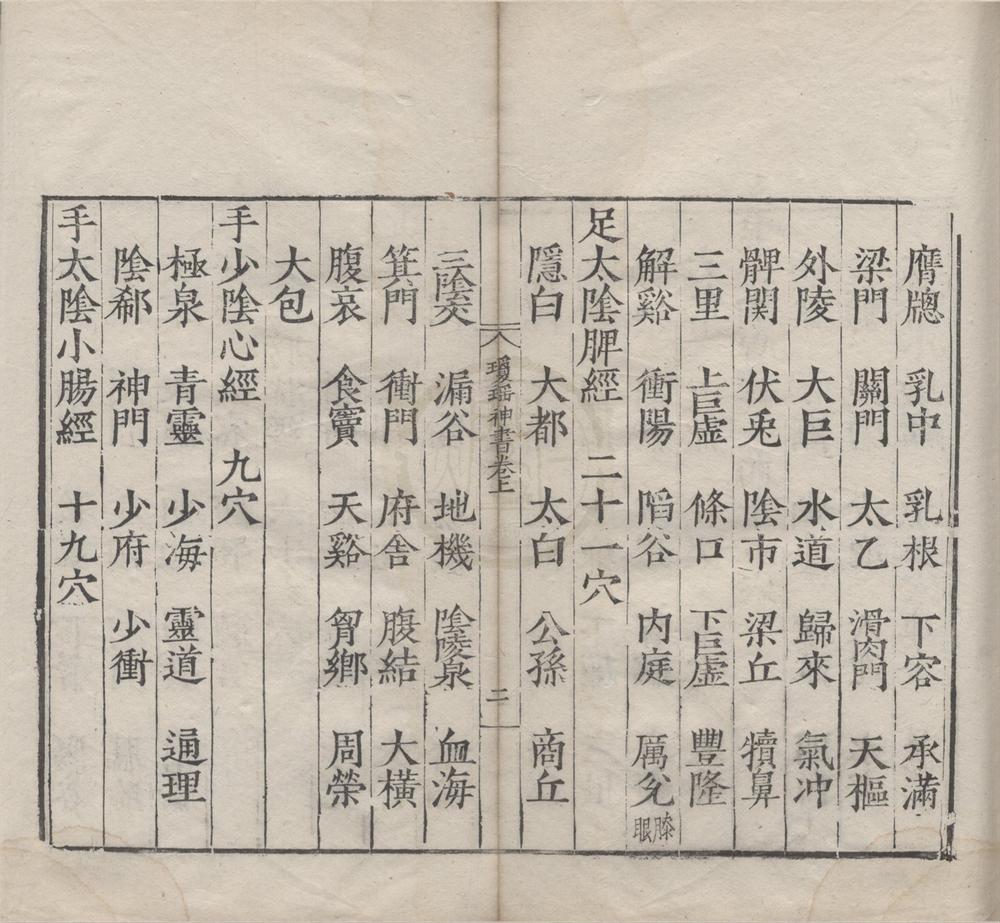 膺牕 乳中 乳根 下容 承滿
梁門 關門 太乙 滑肉門 天樞
外陵 大巨 水道 歸來 氣冲
髀関 伏兎 陰市 梁丘 犢鼻
三里 上巨虛 條口 下巨虛 豐隆
解谿 衝陽 䧟谷 內庭 厲兊 膝眼
足太陰脾經 二十一穴
隱白 大都 太白 公孫 商丘
瓊瑶神書卷上 二
三陰交 漏谷 地機 陰陵泉 血海
箕門 衝門 府舍 腹結 大横
腹哀 食竇 天谿 胷鄉 周榮
大包
手少陰心經 九穴
極泉 青靈 少海 靈道 通理
陰郗 神門 少府 少衝
手太陰小腸經 十九穴